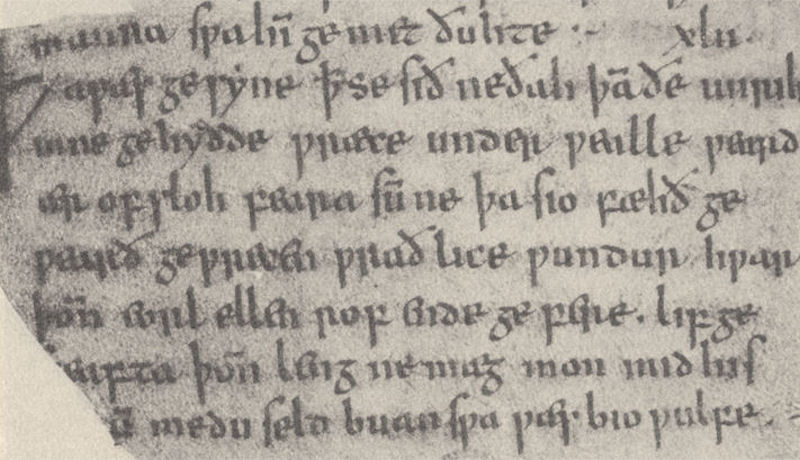 manna sƿa hī gemet ðuhte :~ xlii.
a ƿæs gesyne ꝥ se sið ne ðah þā ðe unrih
inne gehydde ƿræce under ƿealle ƿeard
ær ofsloh feara sūne þa sio fæhð ge
ƿearð geƿrecen ƿraðlice ƿundur hƿar
þoń eorl ellen rof ende gefere. lif ge
eafta þoń leng ne mæg mon mid his
ū medu seld buan sƿa ƿæs bioƿulfe.